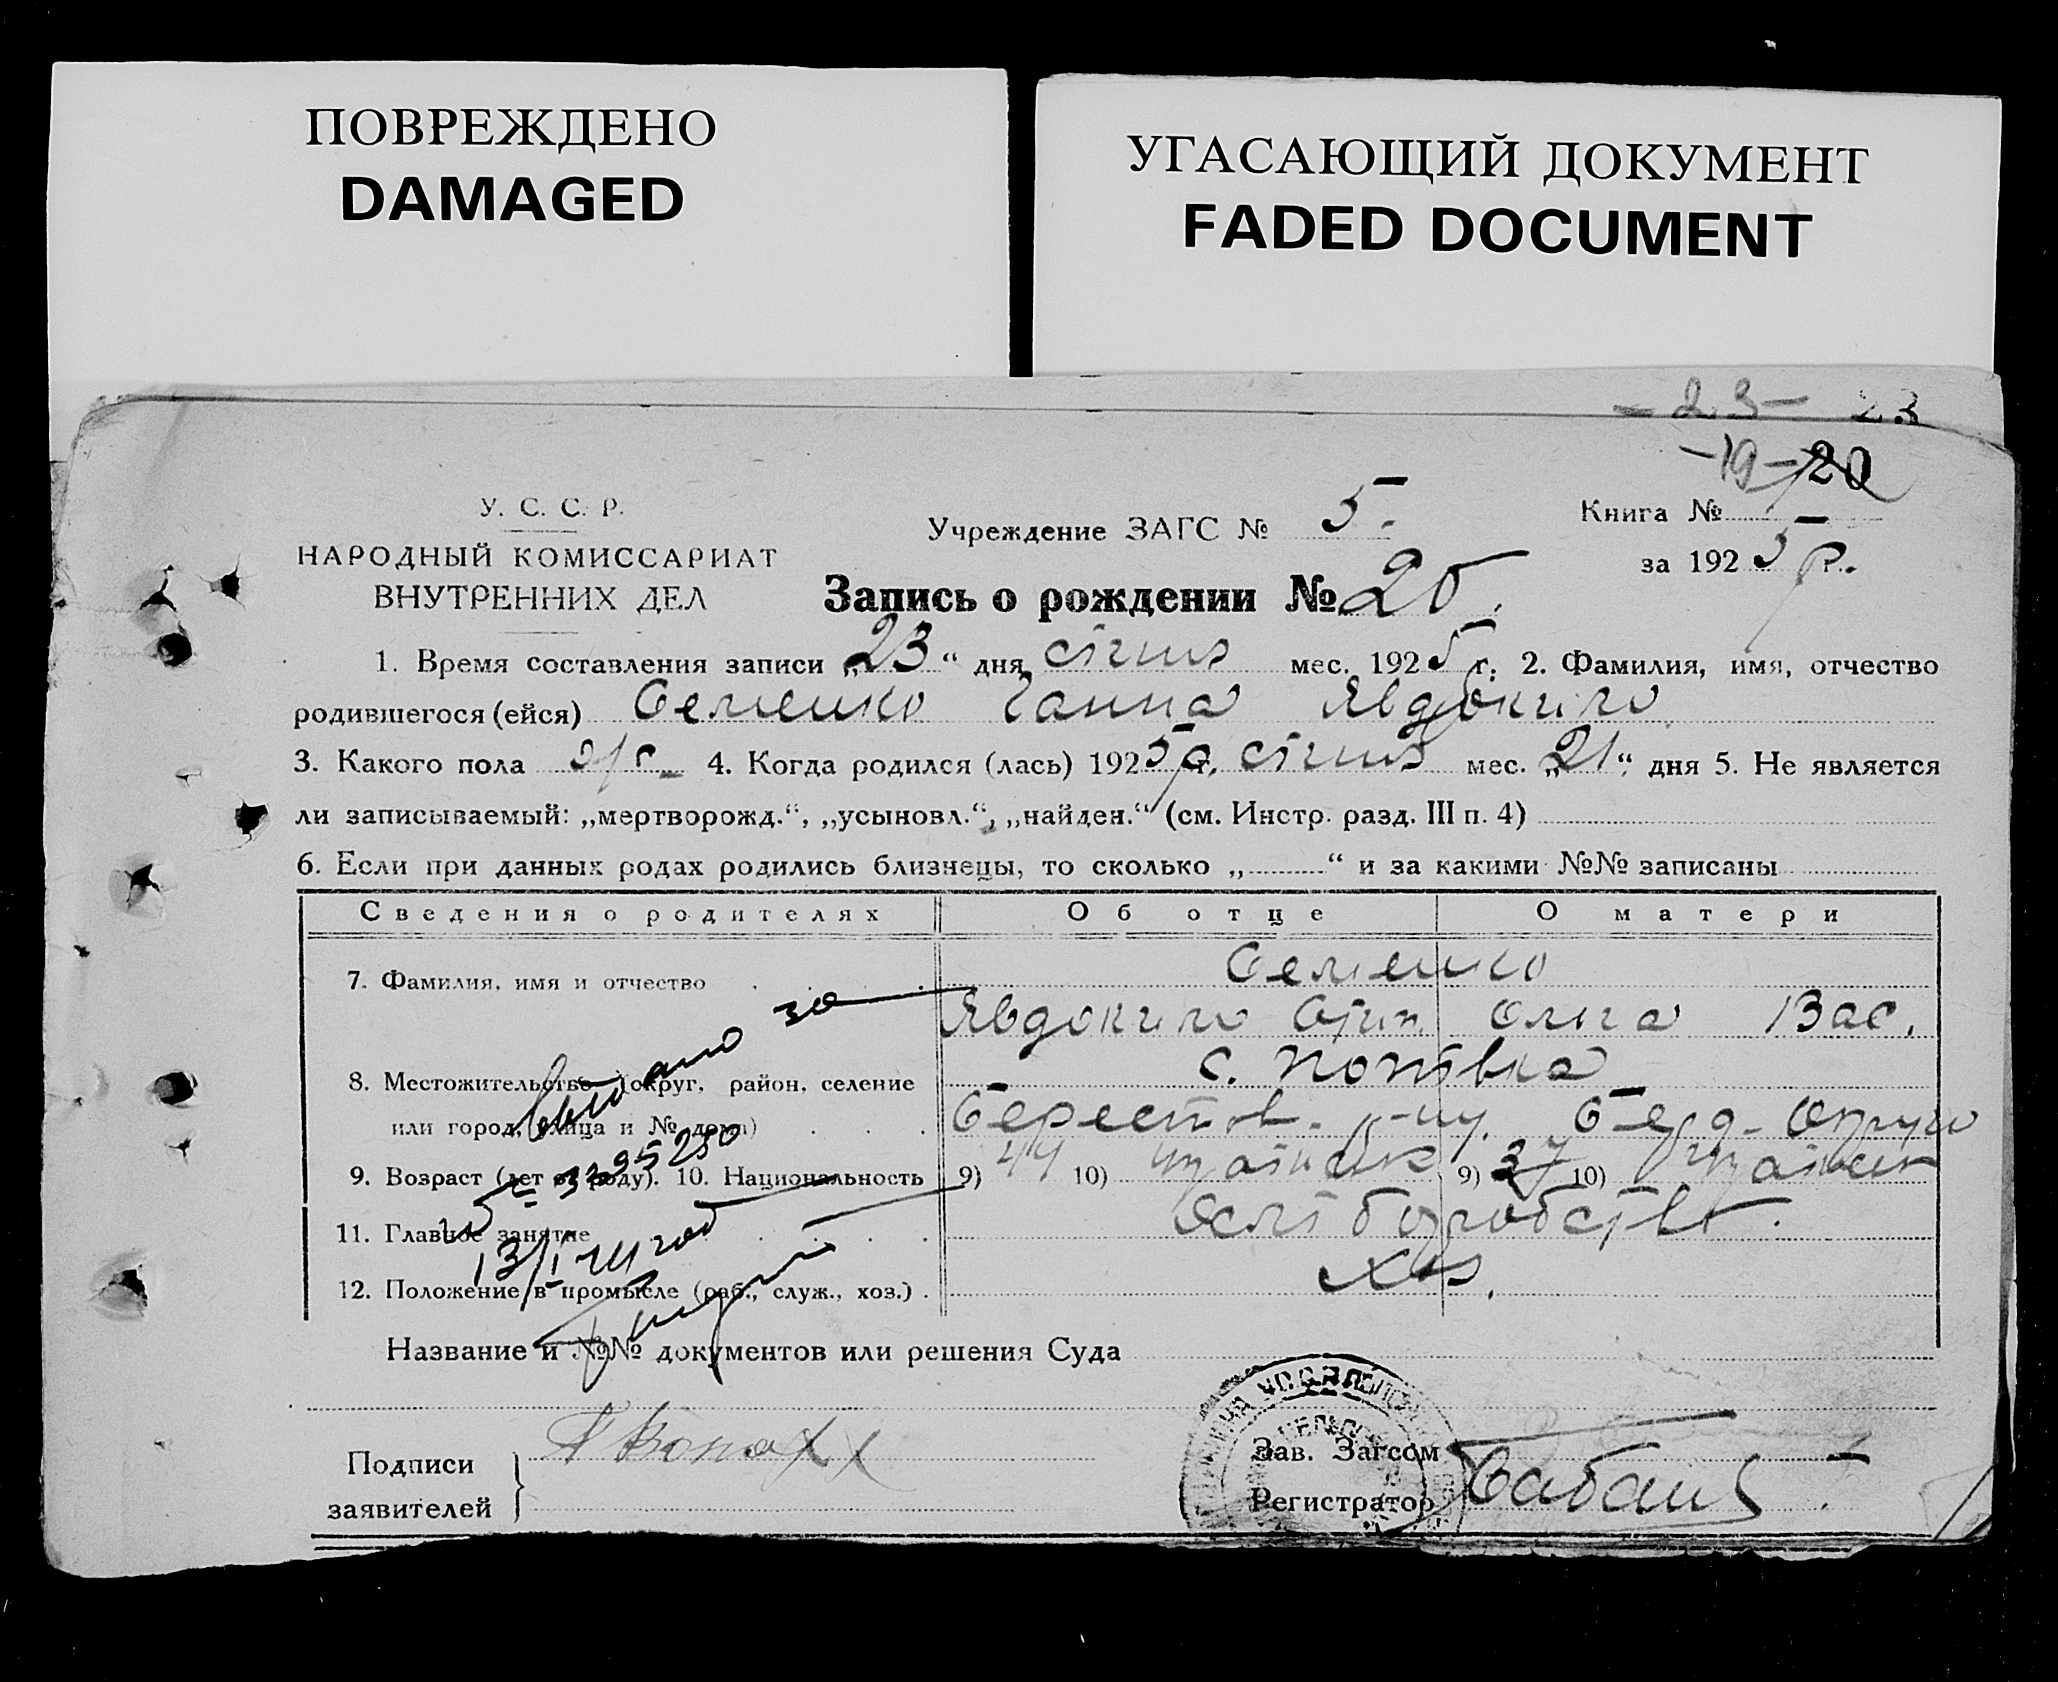 ПОВРЕЖДЕНО
DAMAGED
УГАСАЮЩИЙ ДОКУМЕНТ
FADED DOCUMENT
- 23 - 23
- 19 - 20
У. С. С. Р.
НАРОДНЫЙ КОМИССАРИАТ
ВНУТРЕННИХ ДЕЛ
Учреждение ЗАГС № 5.
Книга №
за 1925 р.
Запись о рождении № 20.
1. Время составления записи „23“ дня січня мес. 1925 г. 2. Фамилия, имя, отчество
родившегося (ейся) Семенко Ганна Явдокимо
3. Какого пола 4. Когда родился (лась) 1925 г. січня мес. „21“ дня 5. Не является
ли записываемый: „мертворожд.“, „усыновл.“, „найден.“ (см. Инстр. разд. III п. 4)
6. Если при данных родах родились близнецы, то сколько „ “ и за какими №№ записаны
Сведения о родителях Об отце О матери
7. Фамилия, имя и отчество Семенко
Явдоким Олига Вас.
8. Местожительство (округ, район, селение с. Попівка
или город, улица и № дома) Берестов. р-ну. Берд. Округи
9. Возраст (лет от роду). 10. Национальность 9) 44 10) 9) 37 10)
11. Главное занятие
12. Положение в промысле (раб., служ., хоз.) хоз.
Выдано за
3395250
13/I 41 год
Название и №№ документов или решения Суда
Подписи
заявителей
Зав. Загсом
Регистратор